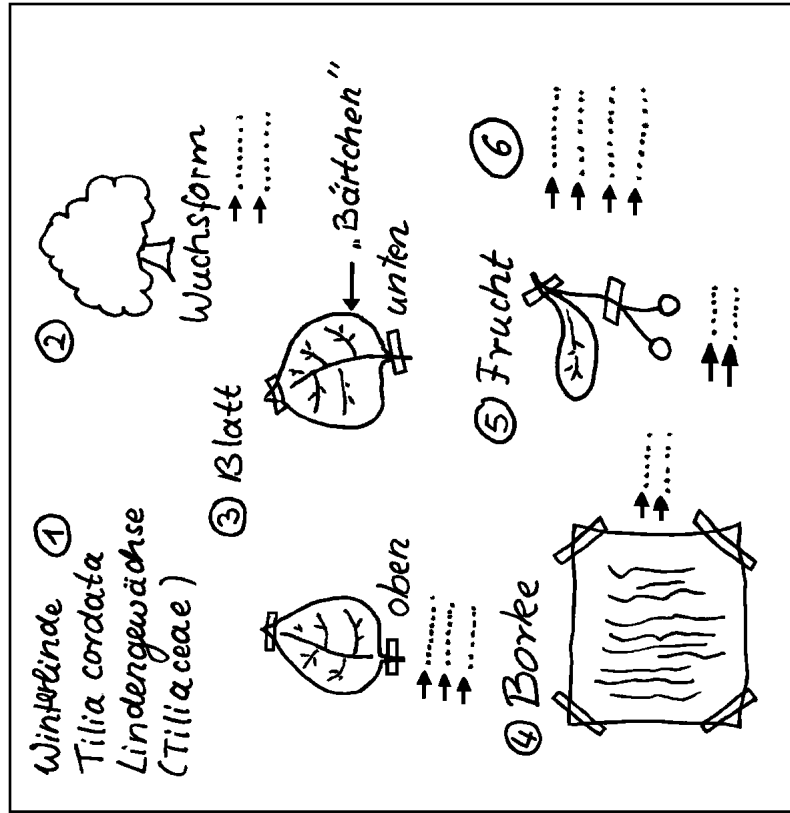 Winterlinde ①
Tilia cordata
Lindengewächse
(Tiliaceae)
②
Wuchsform
③ Blatt
oben
unten
„Bärtchen”
④ Borke
⑤ Frucht
⑥